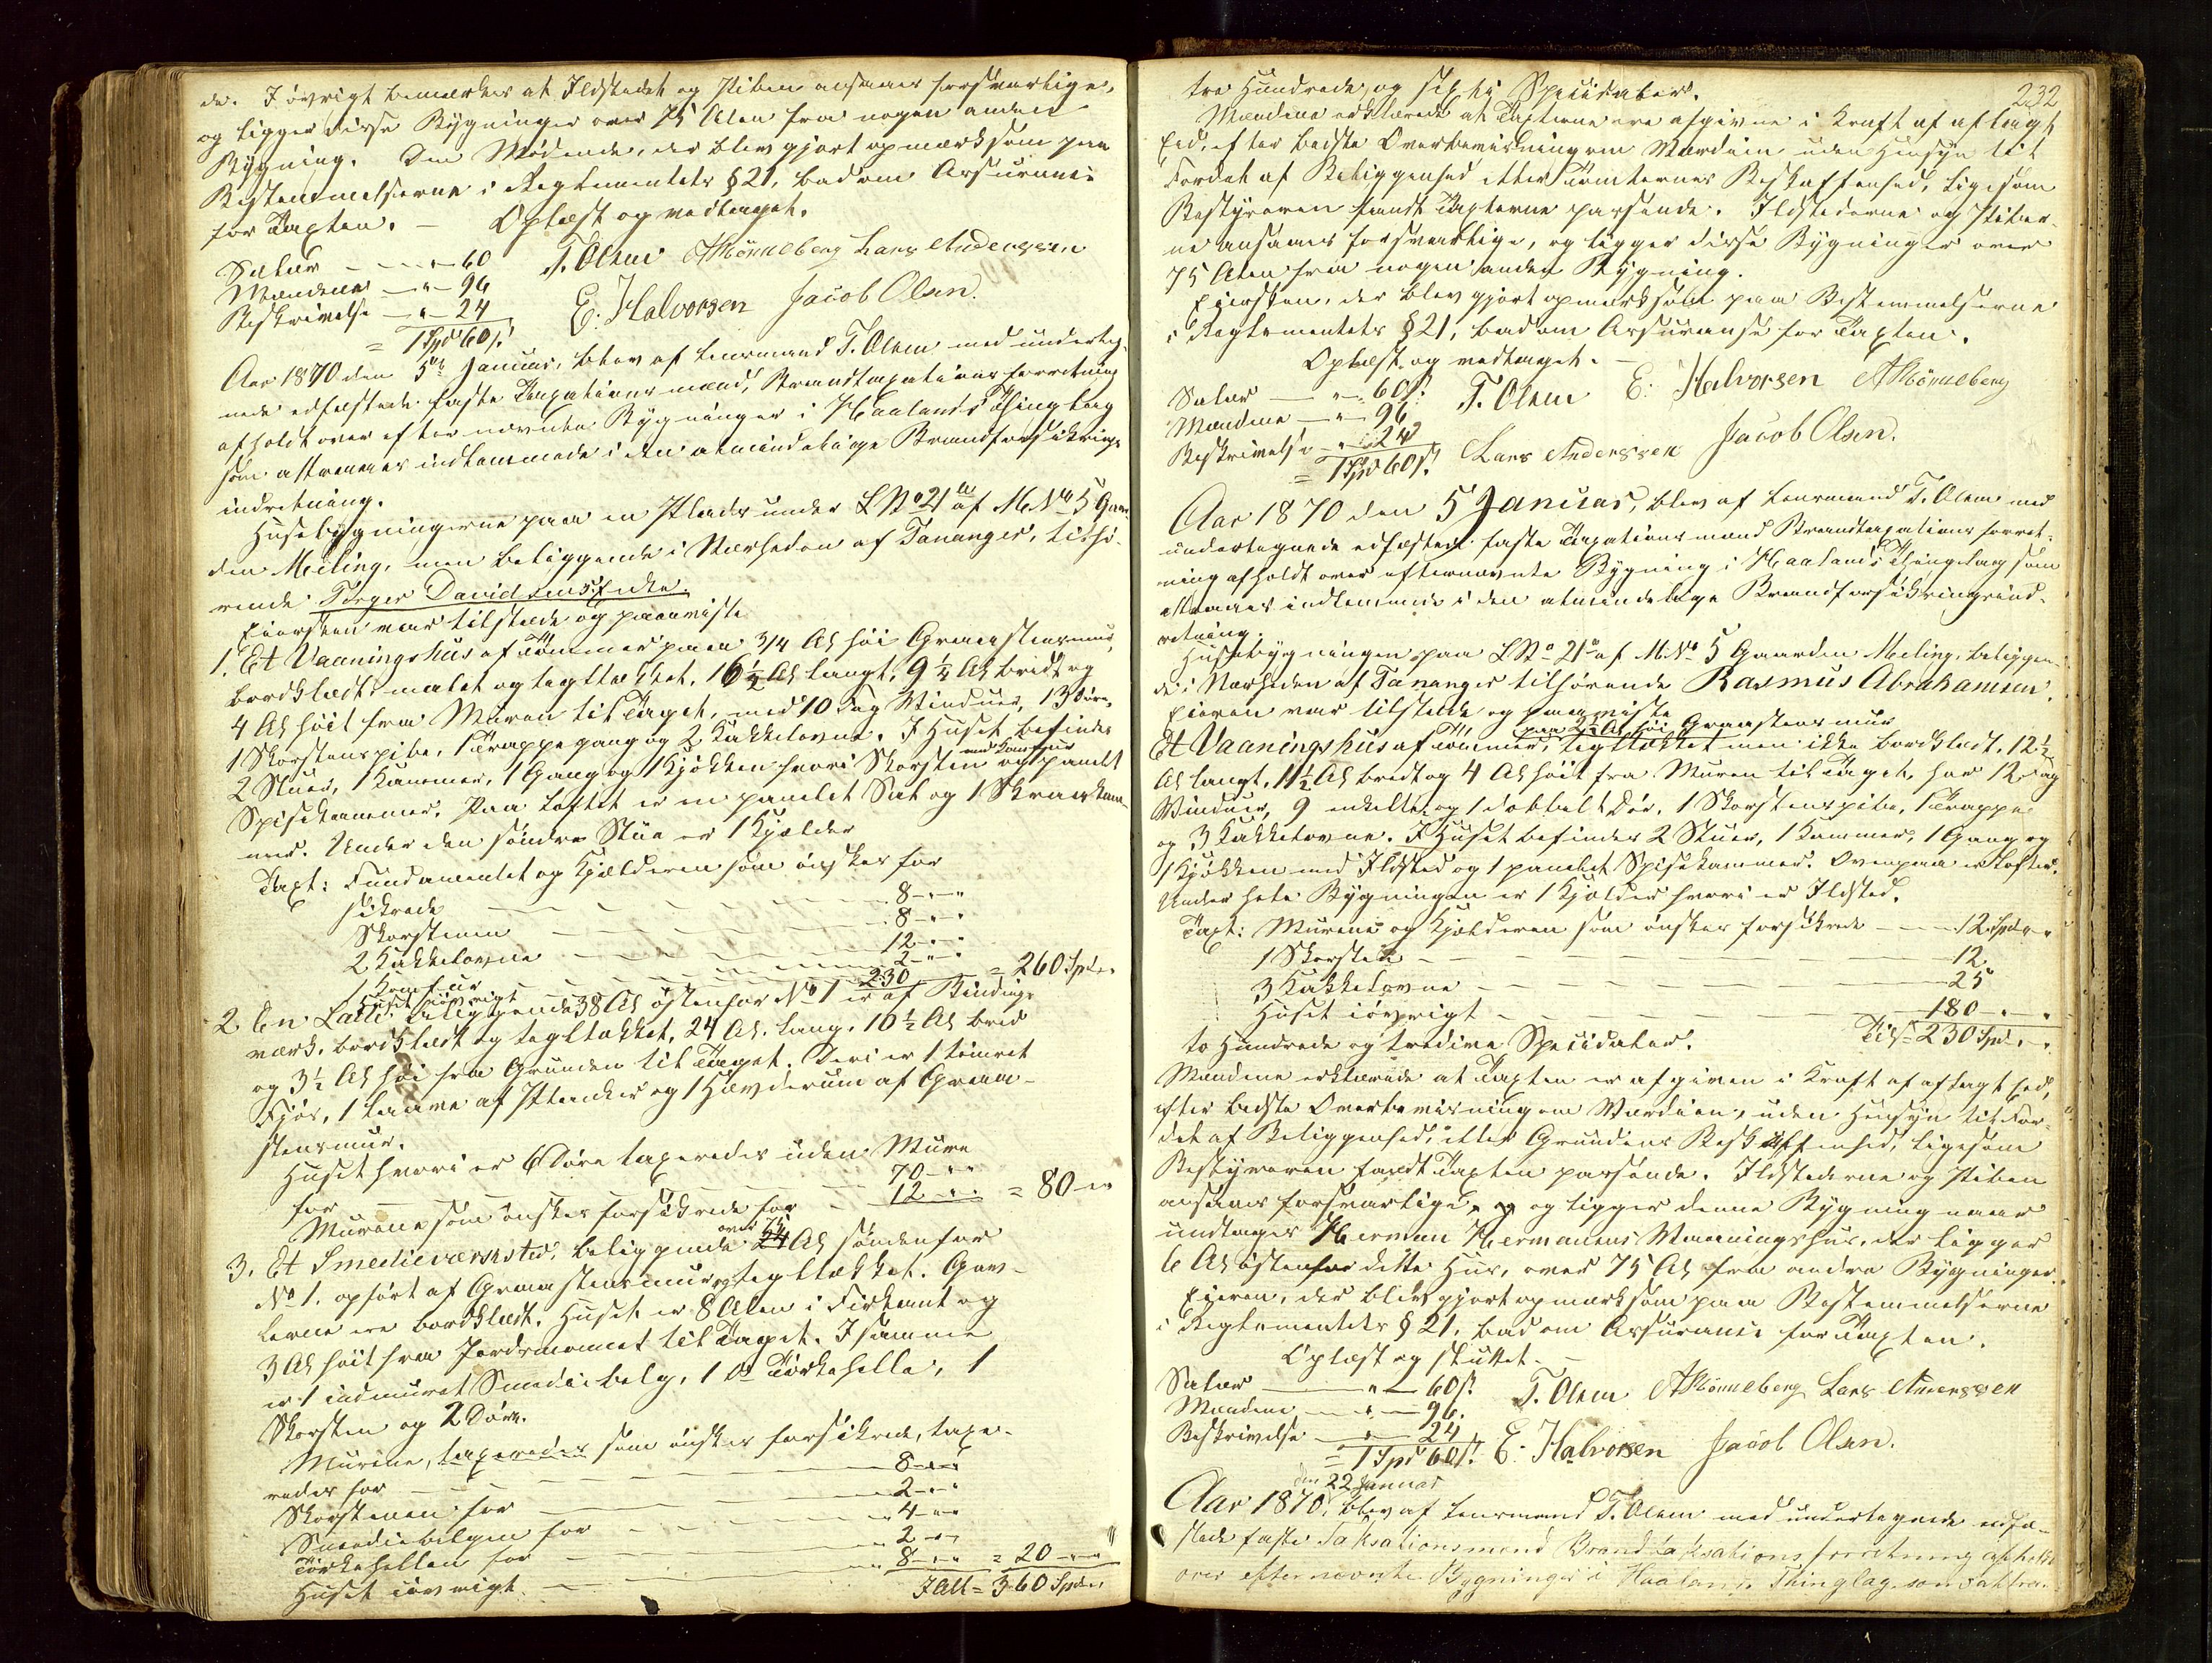 de. I øvrigt bemærkes at Ildstedet og Piben ansaaes forsvarlige,
og ligger disse Bygninger over 75 Alen fra nogen anden
Bygning. Den Mødende, der blev gjort opmærksom paa
Bestemmelserne i Reglementets § 21, bad om Assurance
for Taxten. – Oplæst og vedtaget.
Salær — „ – 60 T. Olsen A Mønneberg Lars Anderssen
Mændene — „ – 96
Beskrivelse — „ – 24 E. Halvorsen Jacob Olsen.
= 1 Spd 60 s.
Aar 1870 den 5te Januar, blev af Lensmand T. Olsen med underteg-
nede edfæstede faste Taxationsmænd, Brandtaxationsforretning
afholdt over efternævnte Bygninger i Haalands Thinglag
som attraaes indlemmede i den almindelige Brandforsikrings
indretning.
Husebygningerne paa en Plads under L No 21a af M. No 5 Gaar-
den Meling, men beliggende i Nærheden af Tananger, tilhø-
rende Torger Davidsens Enke.
Eiersken var tilstede og paaviste
1. Et Vaaningshus af Tømmer paa 3/4 Al høi Graastensmur,
bordklædt, malet og tegltækket, 16 ½ Al langt, 9 ½ Al bredt og
4 Al høit fra Muren til Taget, med 10 Fag Vinduer, 13 Døre,
1 Skorstenspibe, 1 Trappegang og 2 Kakkelovne. I Huset befindes
2 Stuer, 1 Kammer, 1 Gang og 1 Kjøkken hvori Skorsten med Komfur og panelt
Spisekammer. Paa Loftet er en panelet Sal og 1 Skraakam-
mer. Under den søndre Stue er 1 Kjælder
Taxt: Fundamentet og Kjælderen som ønskes for
sikrede — 8 – „ „
Skorstenen — 8 – „ „
2 Kakkelovne — 12 – „ „
1 Komfur — 2 – „ „
Huset iøvrigt — 230 = 260 Spd „
2. En Lade, beliggende 38 Al østenfor No 1 er af Bindings
værk, bordklædt og tegltækket, 24 Al. lang, 10 ½ Al bred
og 3 ½ Al høi fra Grunden til Taget. Deri er 1 tømret
Fjøs, 1 Laave af Planker og 1 Høvderum af Graa-
stensmur.
Huset hvori er 6 Døre taxeredes uden Mure
for — 70 – „ „
Murene som ønskes forsikrede for – 12 „ „ = 80 – „
3. Et Smedieværksted, beliggende over 75 Al søndenfor
No 1. opført af Graastensmur og tegltækket. Gav-
lerne ere bordklædt. Huset er 8 Alen i Firkant og
3 Al høit fra Jordsmonnet til Taget. I samme
er 1 indmuret Smediebelg, 1 do Tørkehelle, 1
Skorsten og 2 Døre.
Murene, taxeredes som ønskes forsikrede, taxe-
redes for — 8 – „ „
Skorstenen for — 2 – „ „
Smediebelgen for — 4 – „ „
Tørkehellen for — 2 – „ „
Huset iøvrigt — 8 – „ „ = 20 – „ „
I Alt = 360 Spd „
232
tre Hundrede og sexti Speciedaler.
Mændene erklærede at Taxterne ere afgivne i Kraft af aflagt
Eed, efter bedste Overbeviisning om Værdien uden Hensyn til
Fordel af Beliggenhed eller Tomternes Beskaffenhed, ligesom
Bestyreren fandt Taxterne passende. Ildstederne og Piber-
ne ansaaes forsvarlige, og ligger disse Bygninger over
75 Alen fra nogen anden Bygning.
Eiersken, der blev gjort opmærksom paa Bestemmelserne
i Reglementets § 21, bad om Assuranse for Taxten.
Oplæst og vedtaget. –
Salær — „ – 60 s. T. Olsen E. Halvorsen A Mønneberg
Mændene — „ – 96
Beskrivelse – „ – 24 Lars Anderssen Jacob Olsen.
= 1 Spd 60 s.
Aar 1870 den 5 Januar, blev af Lensmand T. Olsen med
undertegnede edfæstede faste Taxationsmænd Brandtaxationsforret-
ning afholdt over efternævnte Bygning i Haalands Thinglag som
attraaes indlemmede i den almindelige Brandforsikringsind-
retning.
Husebygningen paa L No 21a af M. No 5 Gaarden Meling, beliggen-
de i Nærheden af Tananger tilhørende Rasmus Abrahamsen.
Eieren var tilstede og paaviste
Et Vaaningshus af Tømmer, paa 2 ½ Al høi Graastensmur tegltækket men ikke bordklædt, 12 ½
Al langt, 11 ½ Al bredt og 4 Al høit fra Muren til Taget, har 12 Fag
Vinduer, 9 enkelte og 1 dobbelt Dør, 1 Skorstenspibe, 1 Trappe
og 3 Kakkelovne. I Huset befindes 2 Stuer, 1 Kammer, 1 Gang og
1 Kjøkken med Ildsted og 1 panelet Spisekammer. Ovenpaa er Lofter.
Under hele Bygningen er 1 Kjælder hvori er Ildsted.
Taxt: Murene og Kjælderen som ønskes forsikrede — 12 Spd „ „
1 Skorsten — 12
3 Kakkelovne — 25
Huset iøvrigt — 180 „ „
to Hundrede og tredive Speciedaler. Tils = 230 Spd „ „
Mændene erklærede at Taxten er afgiven i Kraft af aflagt Eed,
efter bedste Overbeviisning om Værdien, uden Hensyn til For-
del af Beliggenhed, eller Grundens Beskaffenhed, ligesom
Bestyreren fandt Taxten passende. Ildstederne og Piben
ansaaes forsvarlige, og og ligger denne Bygning naar
undtages Herman Hermansens Vaaningshus, der ligger
6 Al østenfor dette Hus, over 75 Al fra andre Bygninger.
Eieren, der blev gjort opmærksom paa Bestemmelserne
i Reglementets § 21, bad om Assurance for Taxten.
Oplæst og sluttet. –
Salær — „ – 60 s. T. Olsen A Mønneberg Lars Anderssen
Mændene — „ – 96.
Beskrivelse — „ – 24 E. Halvorsen Jacob Olsen.
= 1 Spd 60 s.
den 22 Januar
Aar 1870, blev af Lensmand T. Olsen med undertegnede edfæ-
stede faste Taksationsmænd Brandtaksationsforretning afholdt
over efternævnte Bygninger i Haalands Thinglag som attraa-